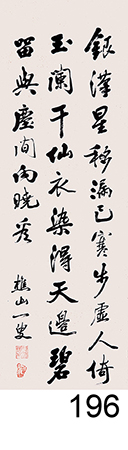 銀漢星移漏已寒步虛人倚
玉闌干仙衣染得天邊碧
留與塵間向曉看
樵山一叟
196